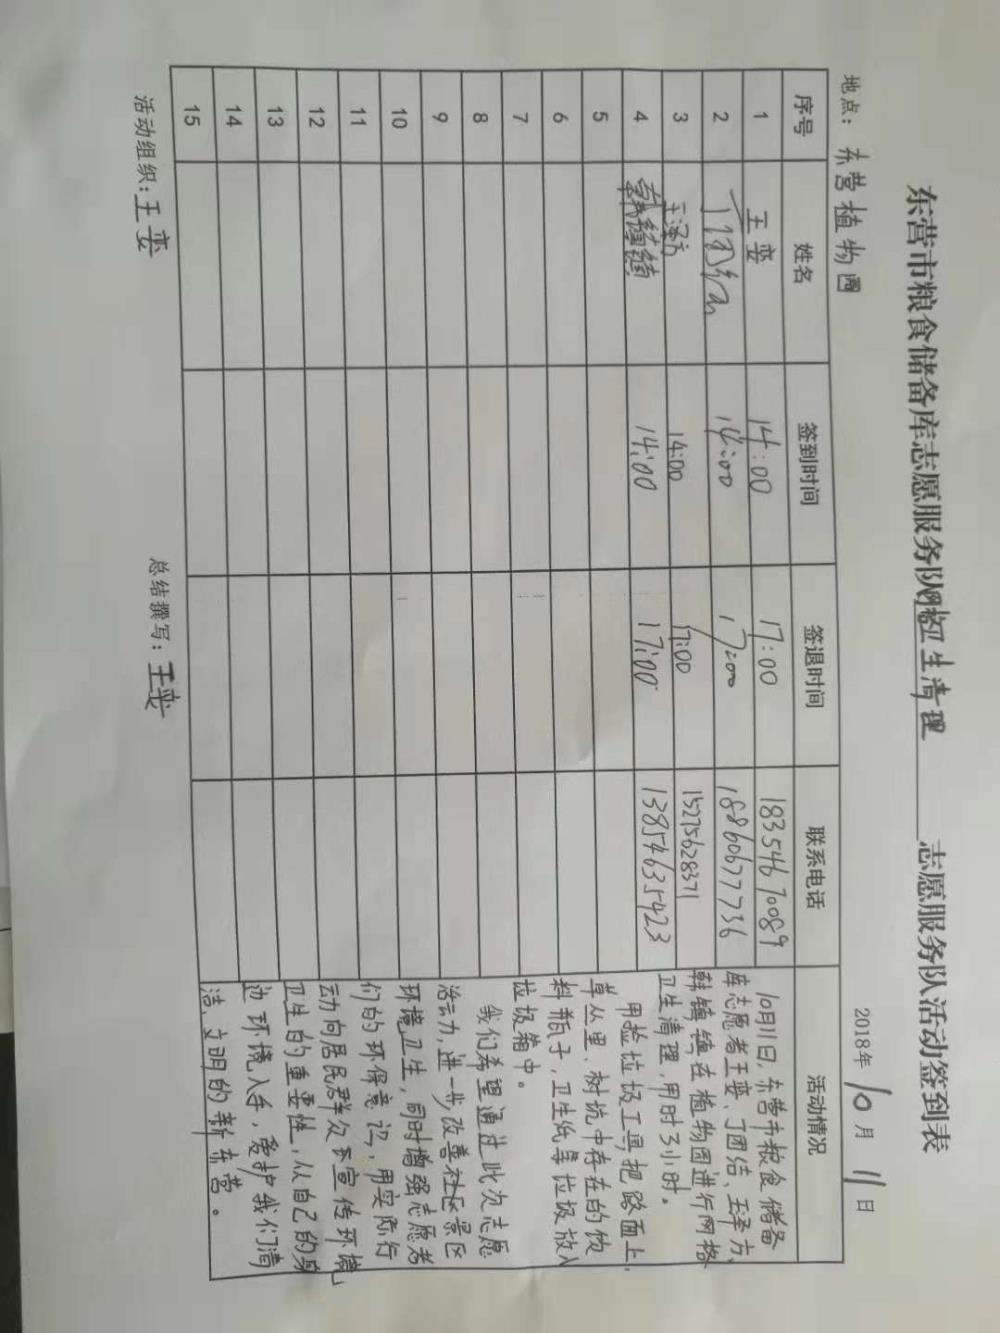 东营市粮食储备库志愿服务队网格卫生清理志愿服务队活动签到表
地点：东营植物园 2018年10月11日
序号 姓名 签到时间 签退时间 联系电话 活动情况
1 王娈 14:00 17:00 18354670089
2 丁团结 14:00 17:00 18860677736
3 王泽方 14:00 17:00 15275628371
4 韩镇镇 14:00 17:00 13854635423
5
6
7
8
9
10
11
12
13
14
15
10月11日，东营市粮食储备
库志愿者王娈、丁团结、王泽方、
韩镇镇在植物园进行网格
卫生清理，用时3小时。
用捡垃圾工具把路面上，
草丛里、树坑中存在的饮
料瓶子，卫生纸等垃圾放入
垃圾箱中。
我们希望通过此次志愿
活动，进一步改善社区景区
环境卫生，同时增强志愿者
们的环保意识，用实际行
动向居民群众宣传环境
卫生的重要性，从自己的身
边环境入手，爱护我们清
洁、文明的新东营。
活动组织：王娈 总结撰写：王娈